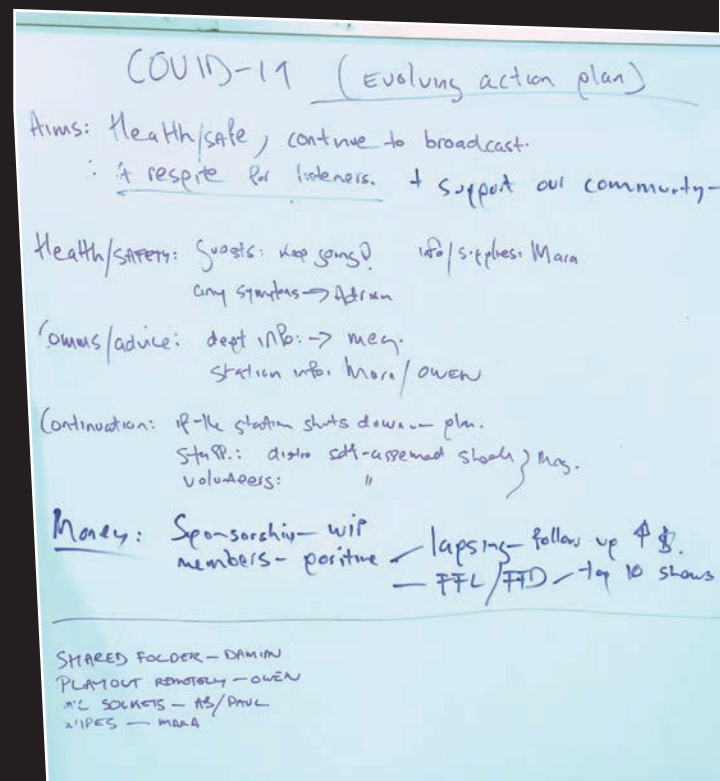 COVID-19 (Evolving action plan)
Aims: Health/safe, continue to broadcast.
: + respite for listeners. + support our community -
Health/SAFETY: Guests: keep going? info/supplies: Mara
any symptoms → Adrian
Comms/advice: dept info: → meg.
station info: Mara/OWEN
Continuation: if the station shuts down — plan.
Staff: distro self-assessment sheets } meg.
Volunteers: "
Money: Sponsorship - WIP
members - positive - lapsing - follow up ↑ $.
- FFL/FFD - top 10 shows
SHARED FOLDER - DAMIAN
PLAYOUT REMOTELY - OWEN
SOCKETS - AB/PAUL
WIPES - MARA